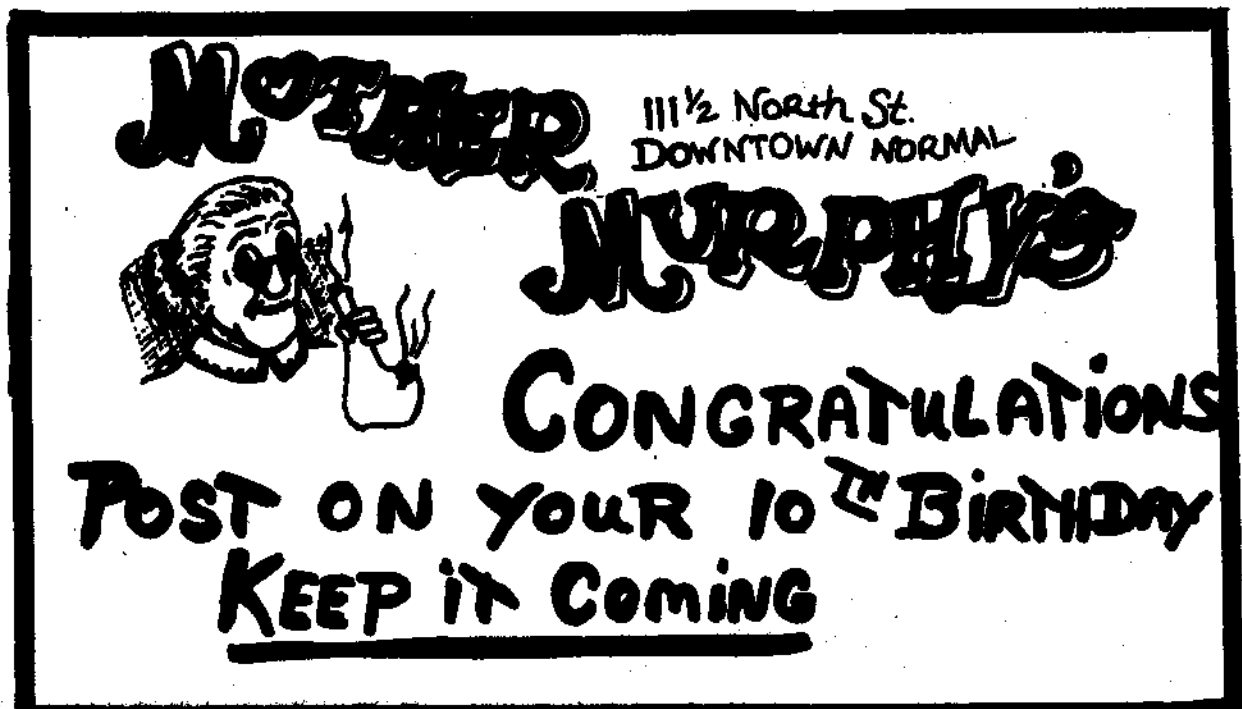 MOTHER
111½ North St.
DOWNTOWN NORMAL
MURPHY'S
CONGRATULATiONS
POST ON YOUR 10TH BiRTHDAY
KEEP iT ComiNG